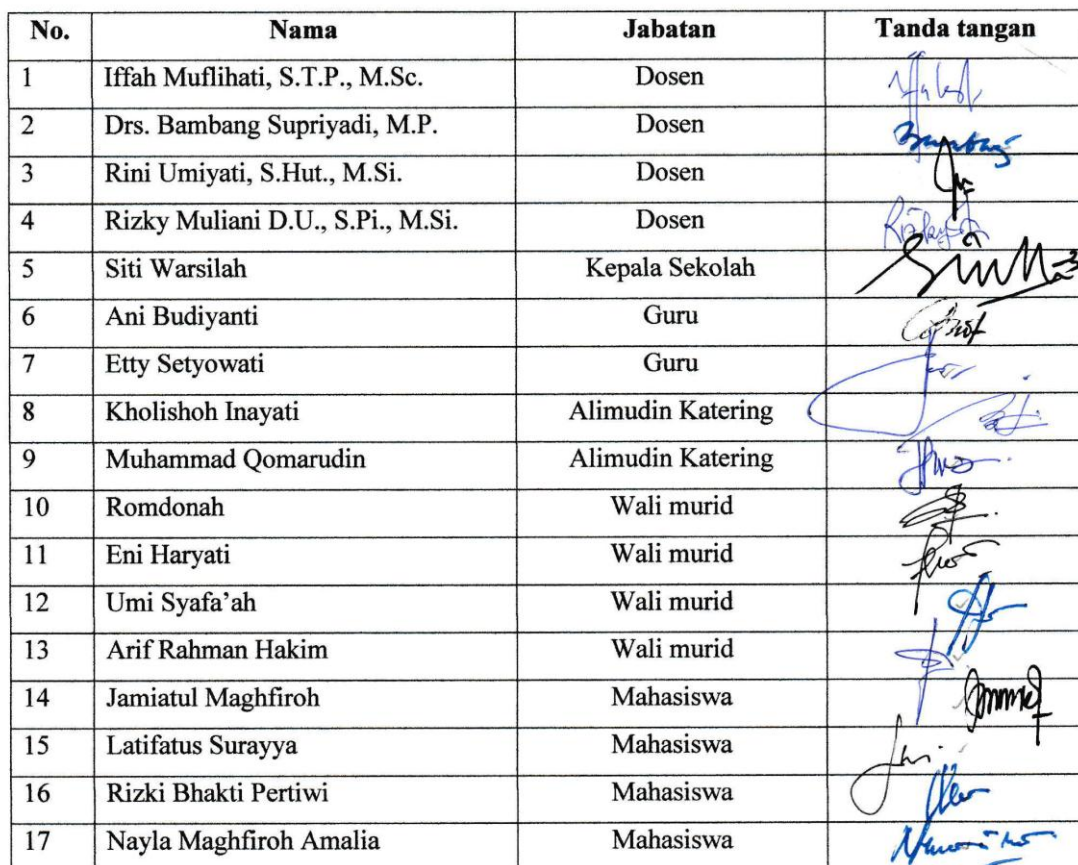 No. Nama Jabatan Tanda tangan
1 Iffah Muflihati, S.T.P., M.Sc. Dosen
2 Drs. Bambang Supriyadi, M.P. Dosen
3 Rini Umiyati, S.Hut., M.Si. Dosen
4 Rizky Muliani D.U., S.Pi., M.Si. Dosen
5 Siti Warsilah Kepala Sekolah
6 Ani Budiyanti Guru
7 Etty Setyowati Guru
8 Kholishoh Inayati Alimudin Katering
9 Muhammad Qomarudin Alimudin Katering
10 Romdonah Wali murid
11 Eni Haryati Wali murid
12 Umi Syafa’ah Wali murid
13 Arif Rahman Hakim Wali murid
14 Jamiatul Maghfiroh Mahasiswa
15 Latifatus Surayya Mahasiswa
16 Rizki Bhakti Pertiwi Mahasiswa
17 Nayla Maghfiroh Amalia Mahasiswa